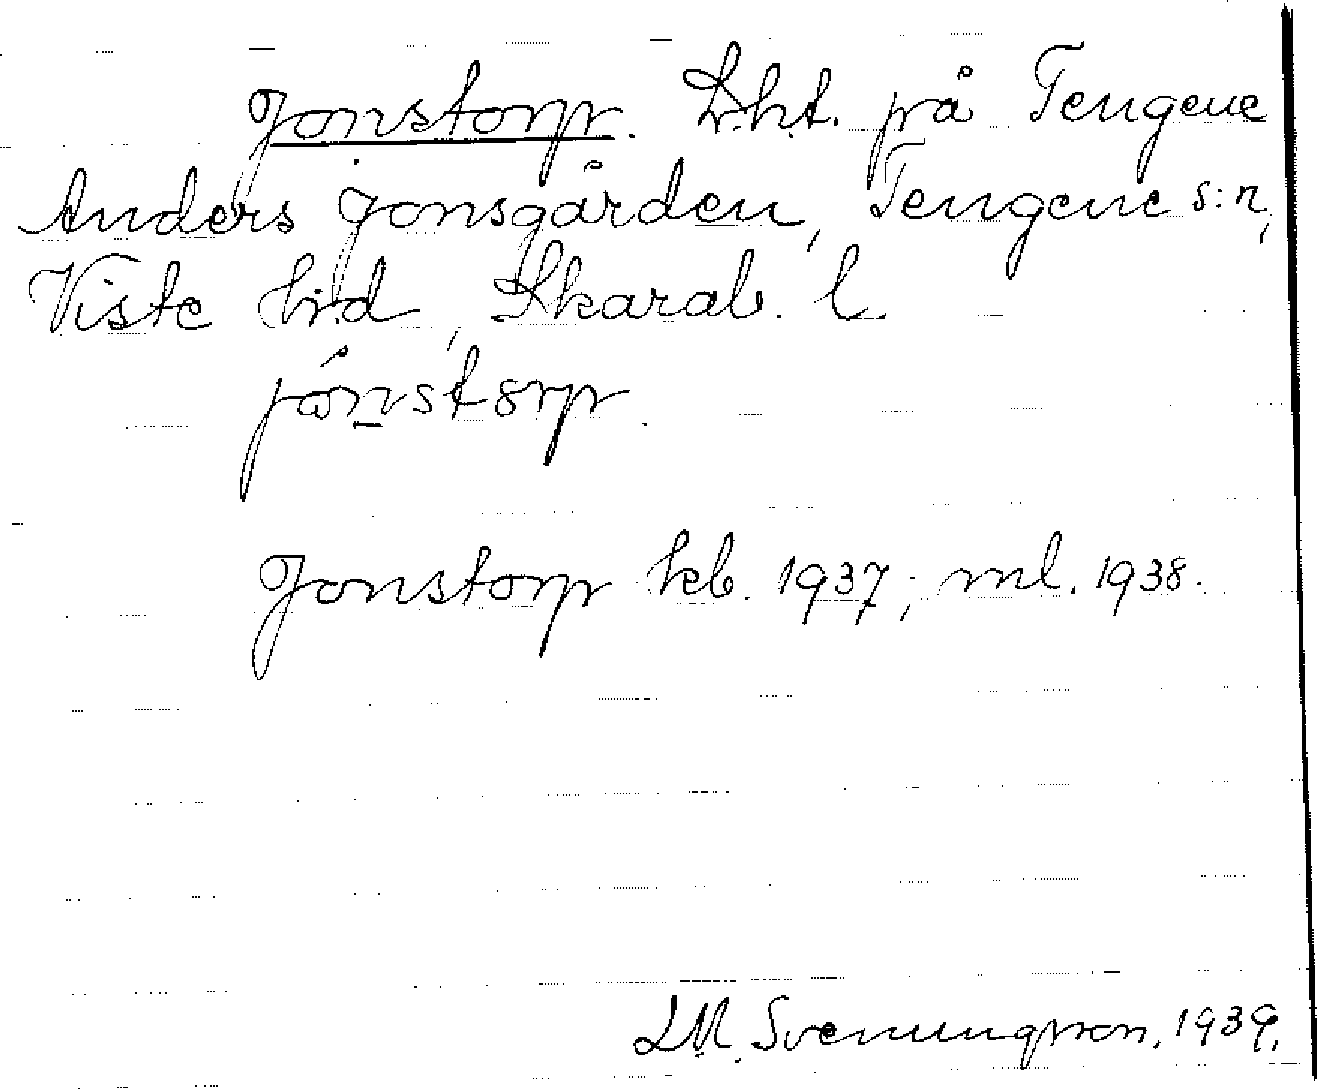 Jonstorp. Lht. på Tengene
Anders Jonsgården, Tengene s:n,
Viste hd, Skarab. l.
Jonstorp kb. 1937; ml. 1938.
Svenungsson, 1939.